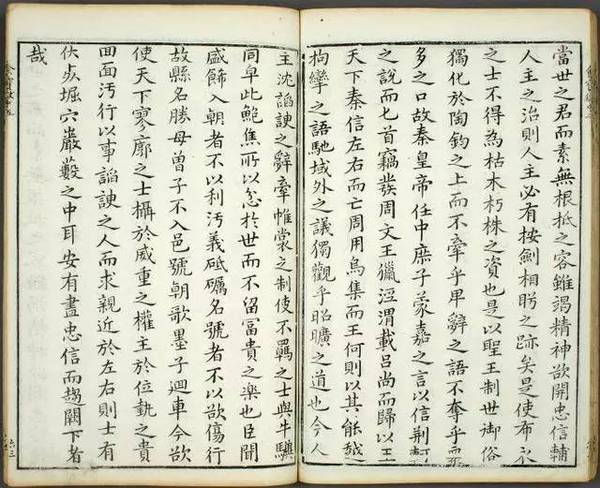 當世之君而素無根柢之容雖竭精神欲開忠信輔
人主之治則人主必有按劍相眄之跡矣是使布衣
之士不得為枯木朽株之資也是以聖王制世御俗
獨化於陶鈞之上而不牽乎卑辭之語不奪乎衆
多之口故秦皇帝任中庶子蒙嘉之言以信荊軻
之說而匕首竊發周文王獵涇渭載呂尚而歸以王
天下秦信左右而亡周用烏集而王何則以其能越
拘攣之語馳域外之議獨觀乎昭曠之道也今人
主沈諂諛之辭牽帷裳之制使不羈之士與牛驥
同皁此鮑焦所以忿於世而不留冨貴之樂也臣聞
盛飾入朝者不以利汚義砥礪名號者不以欲傷行
故縣名勝母曾子不入邑號朝歌墨子迴車今欲
使天下寥廓之士攝於威重之權主於位埶之貴
回面汚行以事諂諛之人而求親近於左右則士有
伏死堀穴巖藪之中耳安有盡忠信而趨闕下者
哉